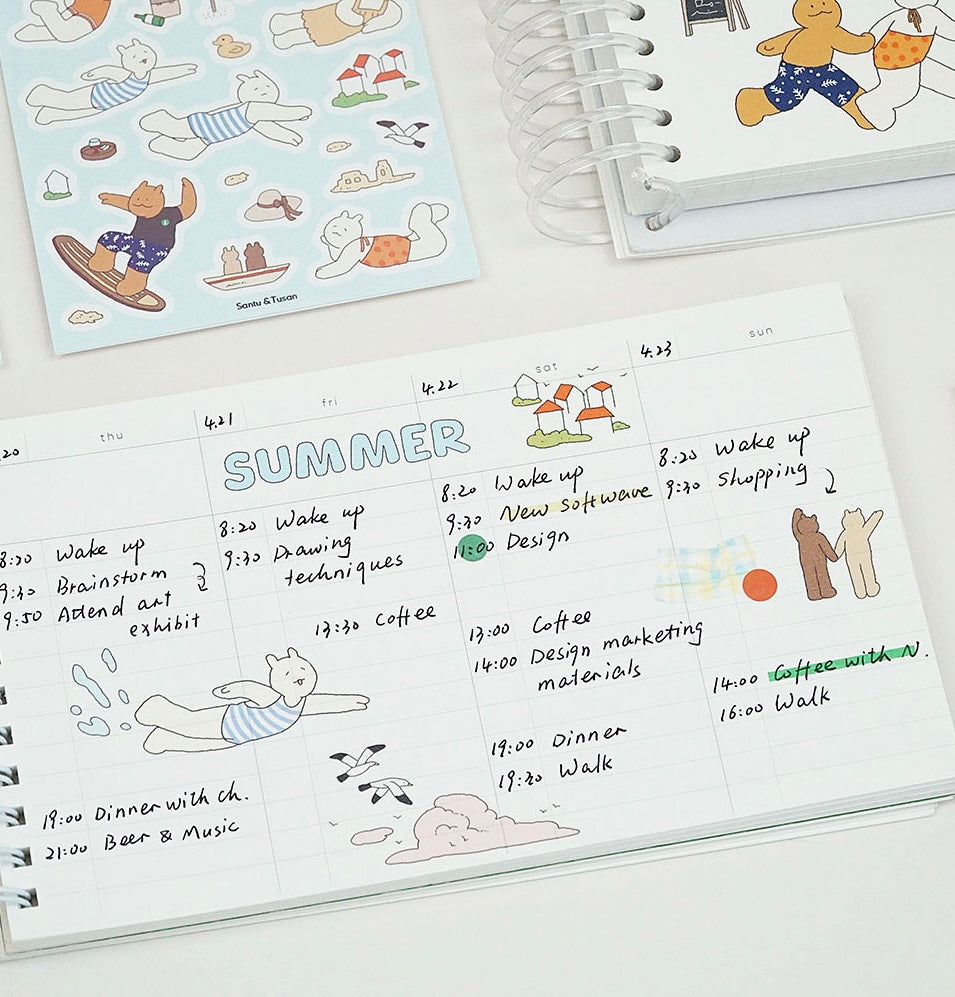 Santu & Tusan
20
thu
8:20 Wake up
9:30 Brainstorm
9:50 Attend art
exhibit
19:00 Dinner with Ch.
21:00 Beer & Music
4.21
fri
SUMMER
8:20 Wake up
9:30 Drawing
techniques
13:30 Coffee
4.22
sat
8:20 Wake up
9:30 New software
11:00 Design
13:00 Coffee
14:00 Design marketing
materials
19:00 Dinner
19:30 Walk
4.23
sun
8:20 Wake up
9:30 Shopping
14:00 Coffee with N.
16:00 Walk